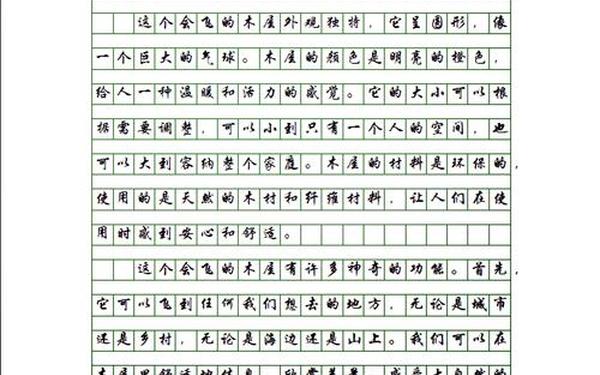 这个会飞的木屋外观独特，它呈圆形，像
一个巨大的气球。木屋的颜色是明亮的橙色，
给人一种温暖和活力的感觉。它的大小可以根
据需要调整，可以小到只有一个人的空间，也
可以大到容纳整个家庭。木屋的材料是环保的，
使用的是天然的木材和纤维材料，让人们在使
用时感到安心和舒适。
这个会飞的木屋有许多神奇的功能。首先，
它可以飞到任何我们想去的地方，无论是城市
还是乡村，无论是海边还是山上。我们可以在
木屋里舒适地休息，欣赏美景，感受大自然的